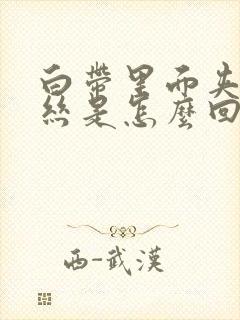 白帶里而夹
絲是怎麼回
西-武漢